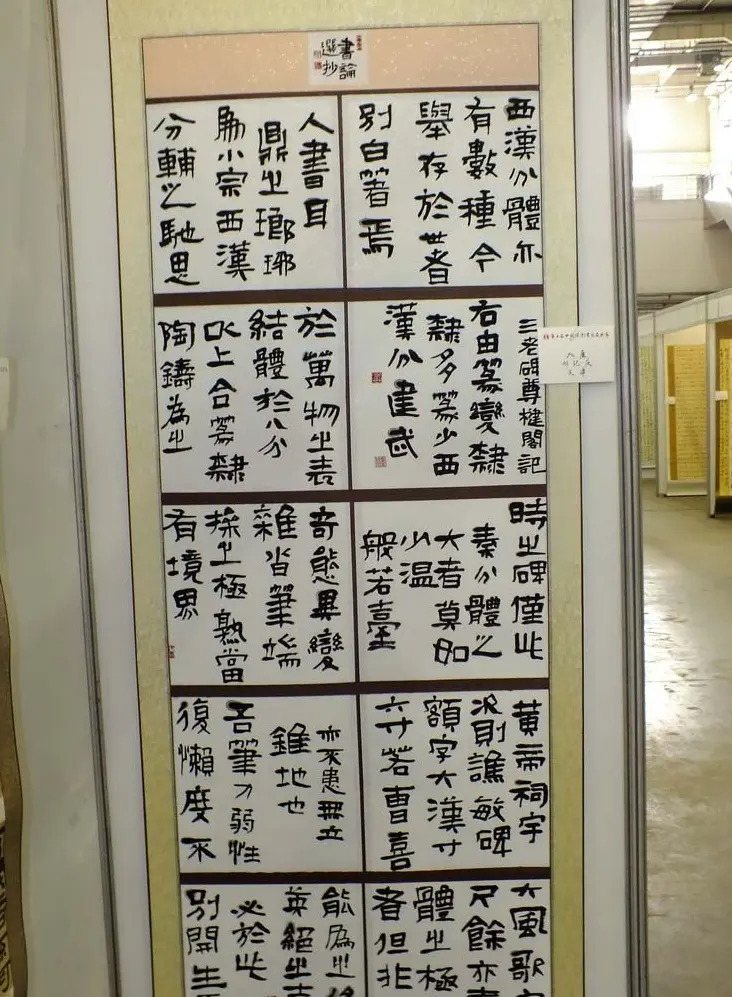 書論
選抄
西漢分體亦
有數種今
舉存於世者
別白箸焉
三老碑尊楗閣記
右由篆變隸
隸多篆少西
漢分建武
時之碑僅此
秦分體之
大者莫如
少温
般若臺
黃帝祠宇
次則譙敏碑
額字大漢寸
六寸若曹喜
大風歌
尺餘亦書
體之極
者但非
人書耳
鼎之瑯琊
勵小宗西漢
分輔之馳思
於萬物之表
結體於八分
以上合篆隸
陶鑄為之
奇態異變
雜沓筆端
操之極熟當
有境界
亦不患無立
錐地也
吾筆力弱性
復懶度不
能為之
英絕之
必於此
別開生